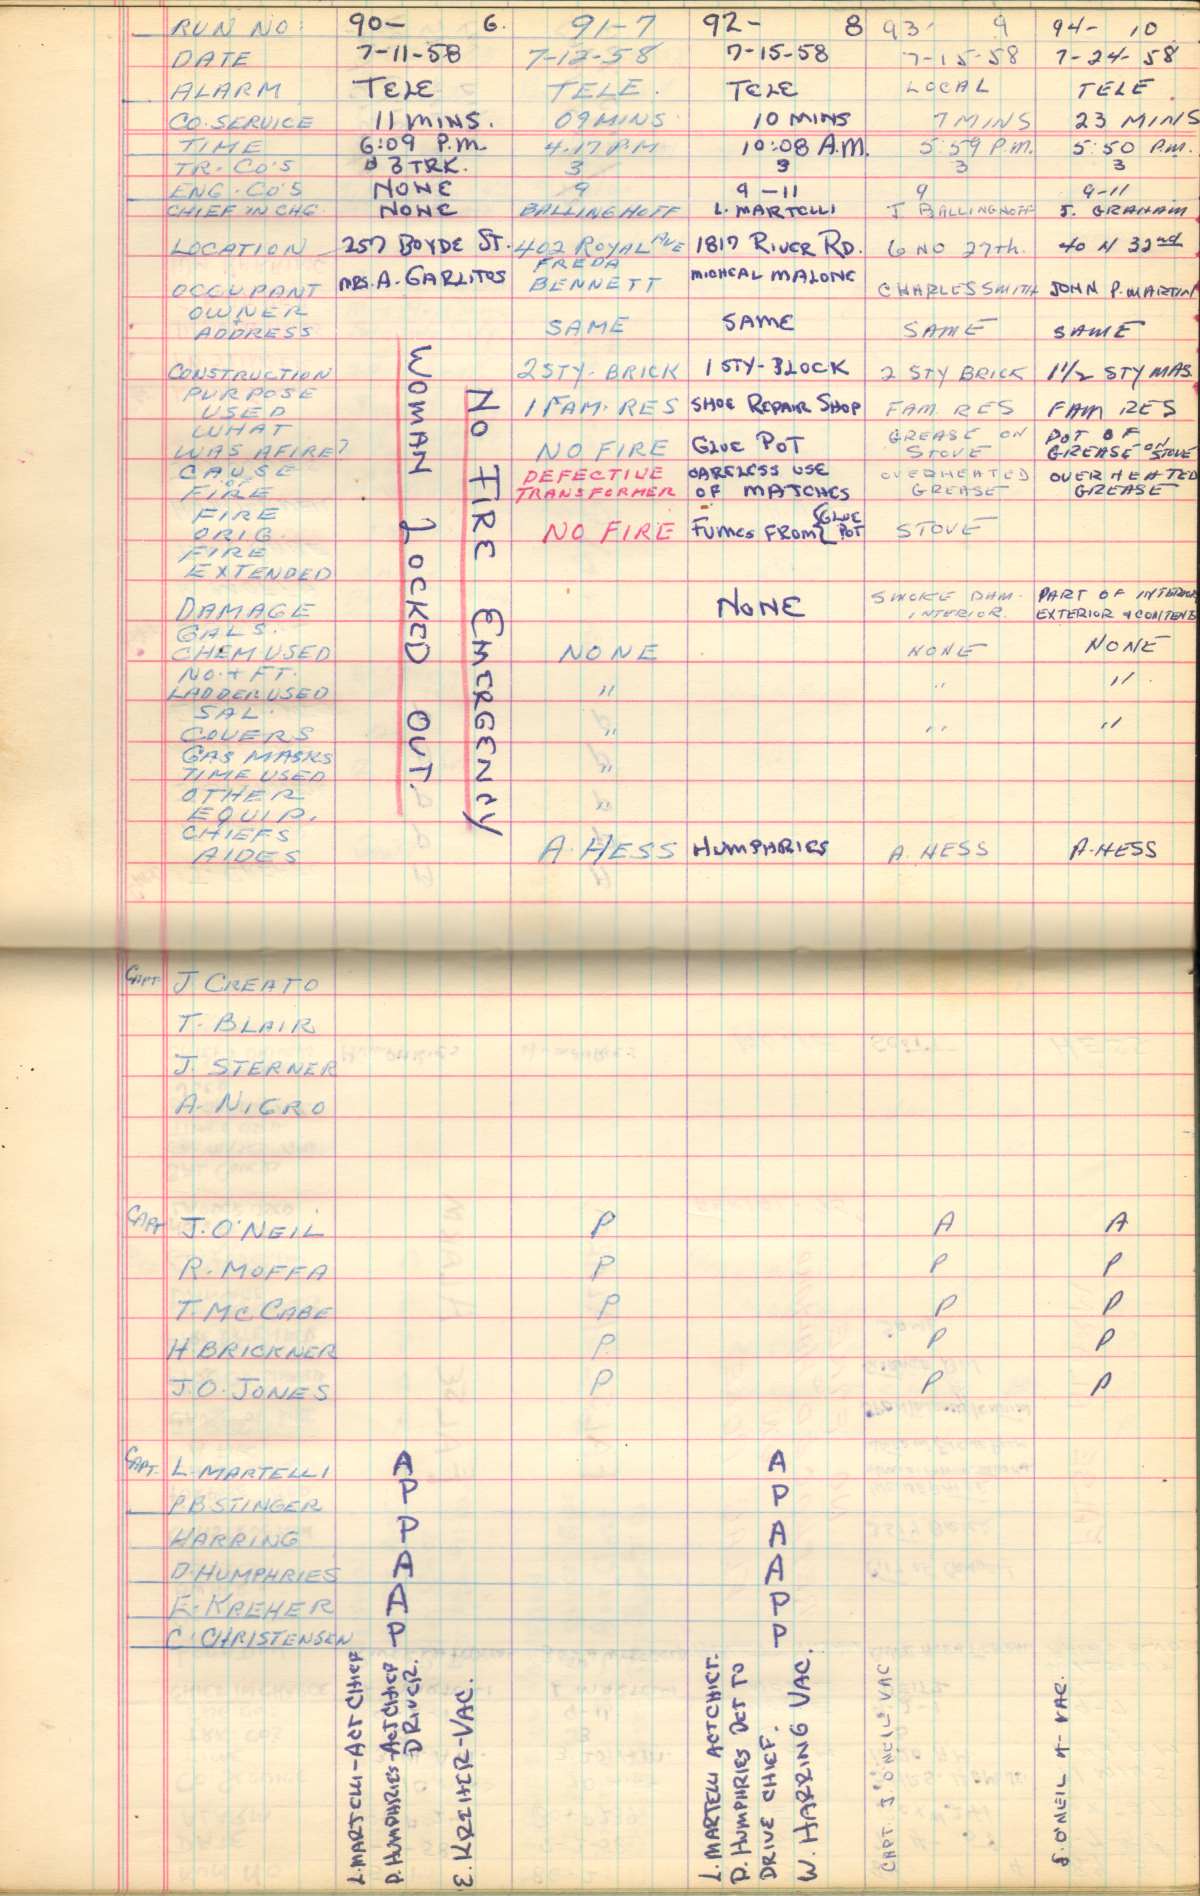 RUN NO: 90- 6. 91-7 92- 8 93- 9 94- 10
DATE 7-11-58 7-12-58 7-15-58 7-15-58 7-24-58
ALARM TELE TELE. TELE LOCAL TELE
CO. SERVICE 11 MINS. 09 MINS. 10 MINS 7 MINS 23 MINS
TIME 6:09 P.M. 4.17 PM 10:08 A.M. 5:59 P.M. 5:50 P.M.
TR. CO'S 3 TRK. 3 3 3 3
ENG. CO'S NONE 9 9-11 9 9-11
CHIEF IN CHG. NONE BALLINGHOFF L. MARTELLI J BALLINGHOFF J. GRAHAM
LOCATION 257 BOYDE ST. 402 ROYAL AVE 1817 RIVER RD. 6 NO 27th. 40 N 32nd
OCCUPANT MRS. A. GARLITOS FREDA BENNETT MICHEAL MALONE CHARLES SMITH JOHN P. MARTIN
OWNER
ADDRESS SAME SAME SAME SAME
CONSTRUCTION 2 STY. BRICK 1 STY-BLOCK 2 STY BRICK 1½ STY MAS.
PURPOSE
USED 1 FAM. RES SHOE REPAIR SHOP FAM. RES FAM RES
WHAT
WAS AFIRE? NO FIRE GLUE POT GREASE ON STOVE POT OF GREASE ON STOVE
CAUSE
OF
FIRE DEFECTIVE TRANSFORMER CARELESS USE OF MATCHES OVERHEATED GREASE OVERHEATED GREASE
FIRE
ORIG. NO FIRE FUMES FROM GLUE POT STOVE
FIRE
EXTENDED
DAMAGE NONE SMOKE DAM. INTERIOR. PART OF INTERIOR EXTERIOR + CONTENTS
GALS.
CHEM USED NONE NONE NONE
NO. + FT.
LADDER USED " " "
SAL.
COVERS " " "
GAS MASKS
TIME USED "
OTHER
EQUIP. "
CHIEFS
AIDES A. HESS HUMPHRIES A. HESS A. HESS
WOMAN LOCKED OUT.
NO FIRE EMERGENCY
CAPT. J. CREATO
T. BLAIR
J. STERNER
A. NIGRO
CAPT J. O'NEIL P A A
R. MOFFA P P P
T. MCCABE P P P
H BRICKNER P P P
J. O. JONES P P P
CAPT. L. MARTELLI A A
P.B STINGER P P
HARRING P A
D. HUMPHRIES A A
E. KREHER A P
C. CHRISTENSEN P P
L. MARTELLI-ACT CHIEF
D. HUMPHRIES-ACT CHIEF
DRIVER.
E. KREHER-VAC.
L. MARTELLI ACT CHIEF.
D. HUMPHRIES DET TO
DRIVE CHIEF.
W. HARRING VAC.
CAPT. J. O'NEIL. VAC
J. O'NEIL A- VAC.